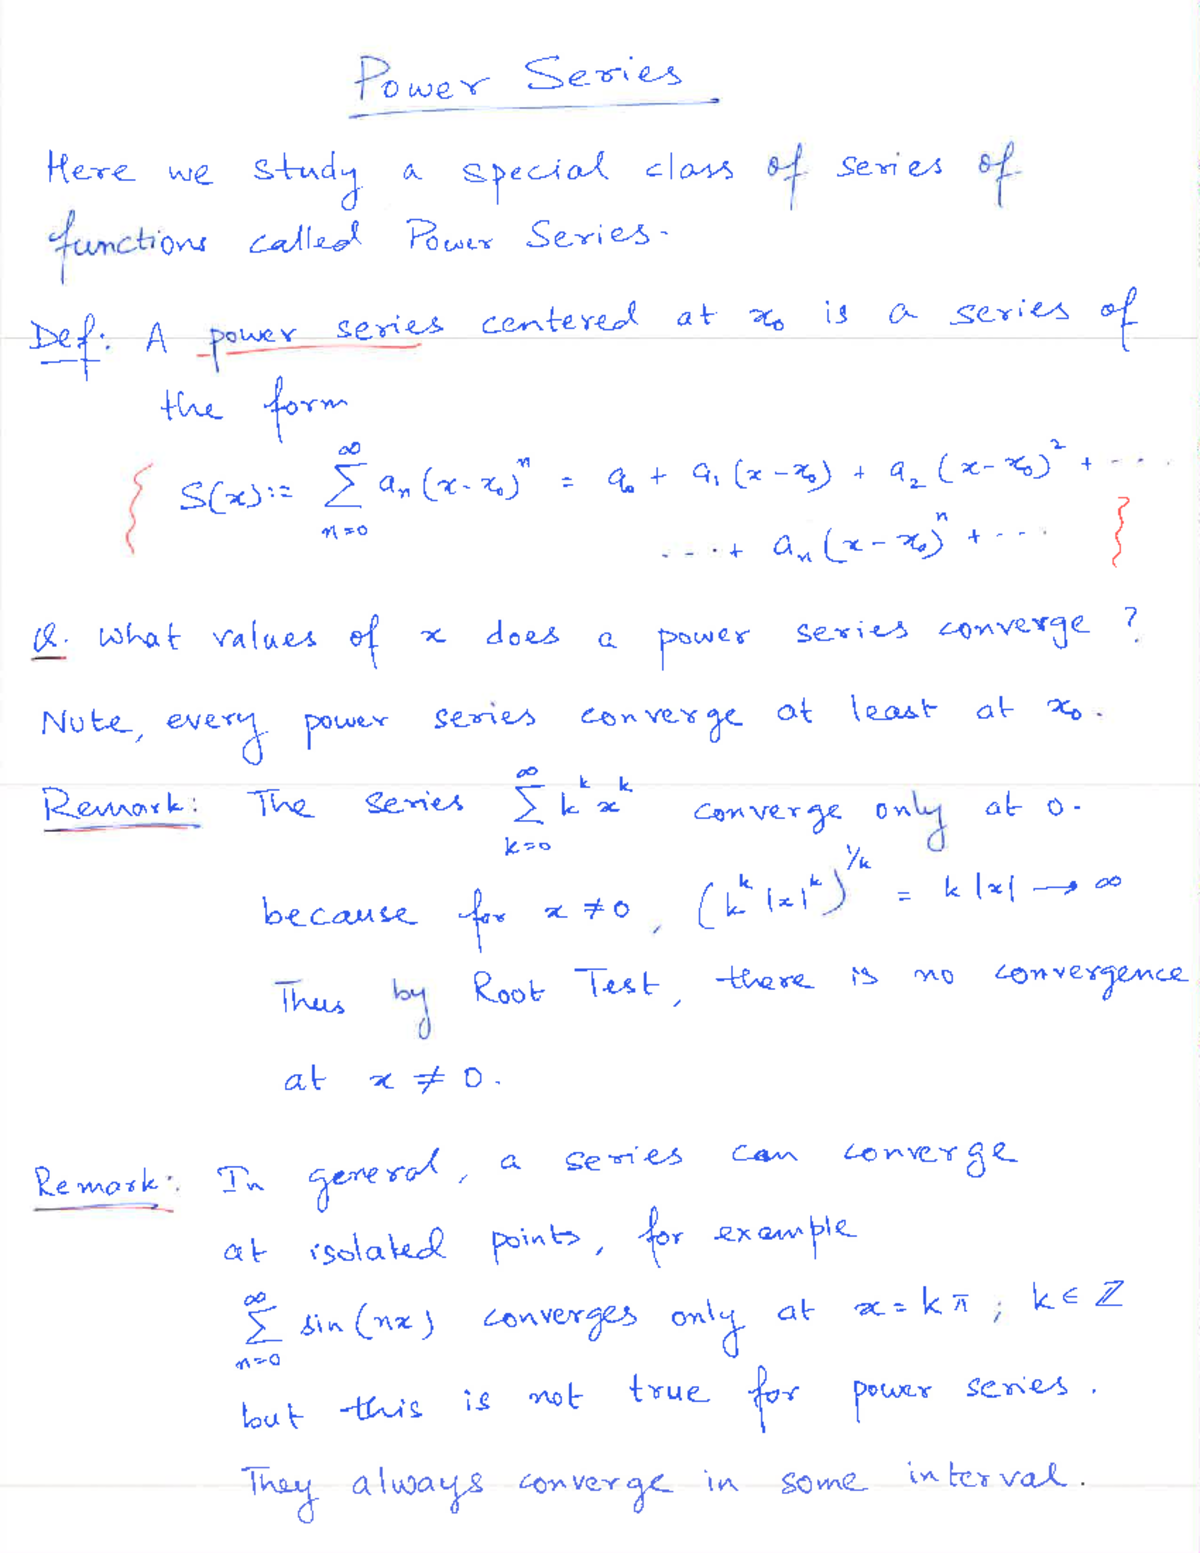 Power Series
Here we study a special class of series of
functions called Power Series.
Def: A power series centered at x₀ is a series of
the form
S(x) := ∑_{n=0}^{∞} aₙ(x-x₀)ⁿ = a₀ + a₁(x-x₀) + a₂(x-x₀)² + ...
...+ aₙ(x-x₀)ⁿ + ...
Q. What values of x does a power series converge?
Note, every power series converge at least at x₀.
Remark: The series ∑_{k=0}^{∞} k^k x^k converge only at 0.
because for x ≠ 0, (k^k |x|^k)^{1/k} = k|x| → ∞
Thus by Root Test, there is no convergence
at x ≠ 0.
Remark: In general, a series can converge
at isolated points, for example
∑_{n=0}^{∞} sin(nx) converges only at x = kπ; k ∈ ℤ
but this is not true for power series.
They always converge in some interval.